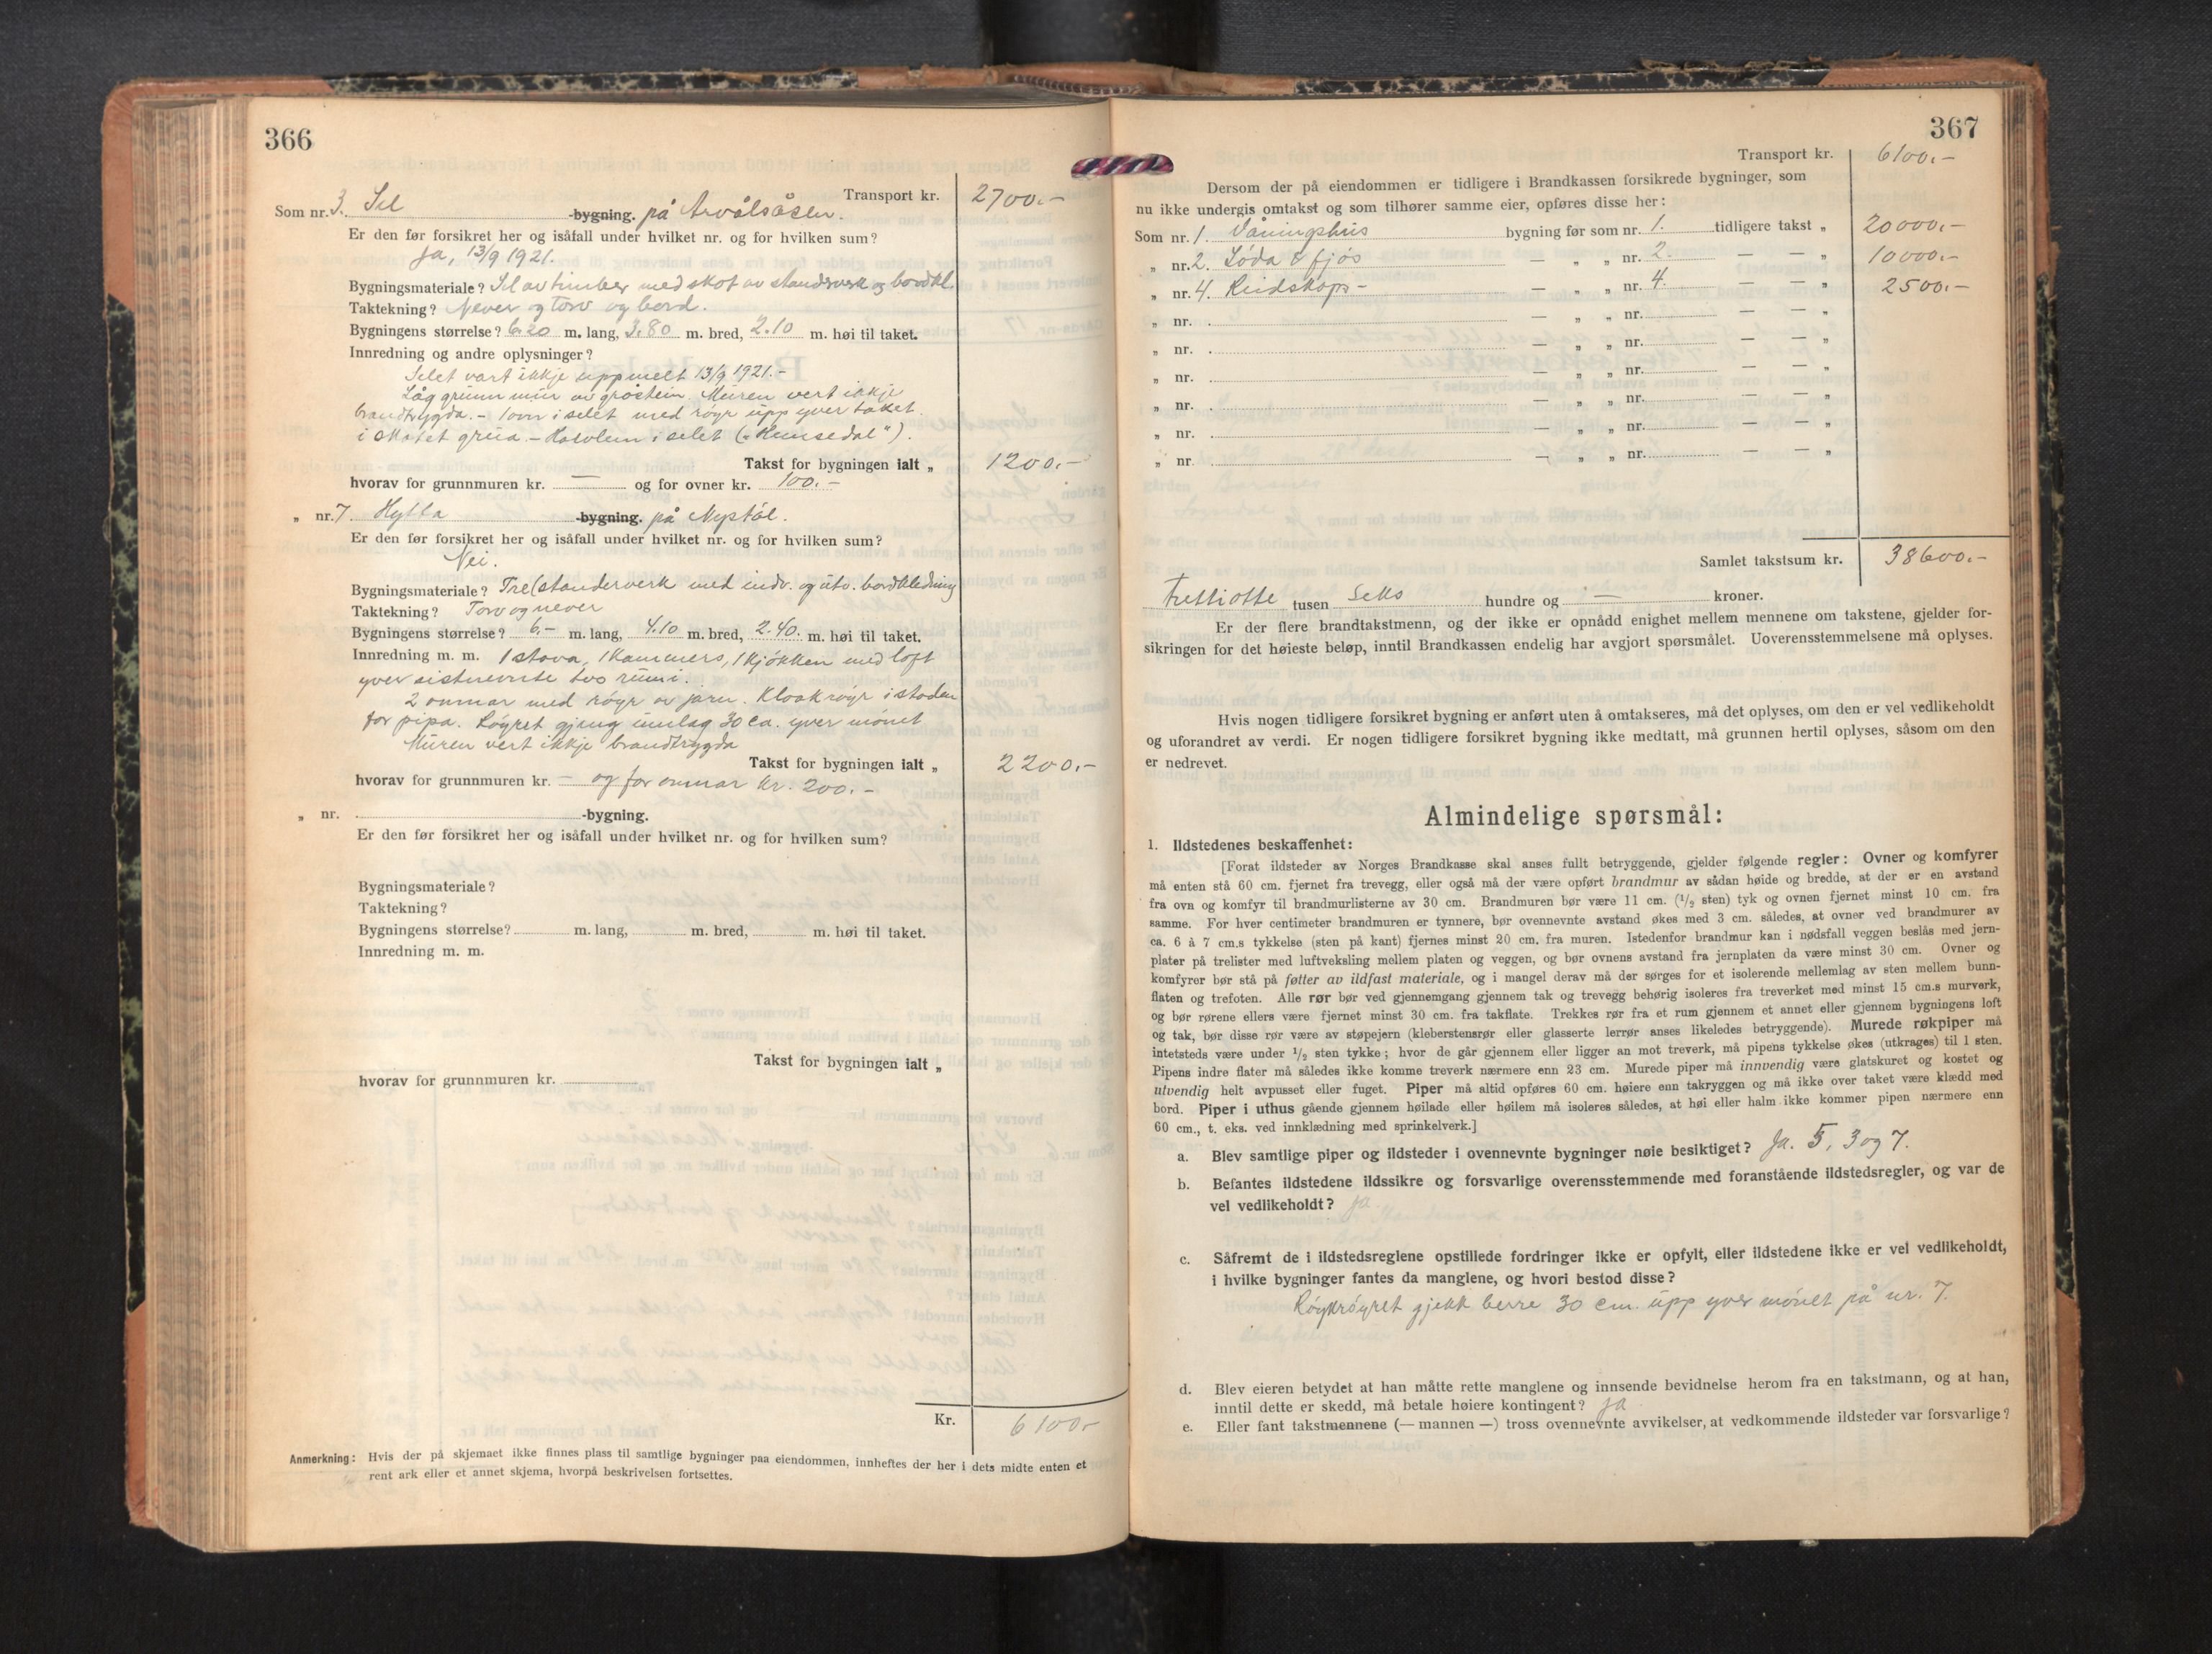 366
Transport kr. 2700.-
Som nr. 3. Sel -bygning. på Arvålsåsen.
Er den før forsikret her og isåfall under hvilket nr. og for hvilken sum?
Ja, 13/9 1921.
Bygningsmateriale? Sel av timber med skot av standverk og bordkl.
Taktekning? Never og torv og bord.
Bygningens størrelse? 6.20 m. lang, 3.80 m. bred, 2.10 m. høi til taket.
Innredning og andre oplysninger?
Selet vart ikkje uppmelt 13/9 1921.-
Låg grunnmur av gråstein. Muren vert ikkje
brandtrygda. - 1 ovn i selet med røyr upp yver taket.
i skotet grua. - i selet ("Hemsedal").
Takst for bygningen ialt „ 1200.-
hvorav for grunnmuren kr. — og for ovner kr. 100.-
„ nr. 7. Hytta -bygning. på Nystøl.
Er den før forsikret her og isåfall under hvilket nr. og for hvilken sum?
Nei.
Bygningsmateriale? Tre (standerverk med indv. og utv. bordkledning
Taktekning? Torv og never
Bygningens størrelse? 6.- m. lang, 4.10 m. bred, 2.40. m. høi til taket.
Innredning m. m. 1 stova, 1 kammers, 1 kjøkken med loft
yver sistnevnte tvo rum.
2 omnar med røyr av jarn. Kloakrøyr i staden
for pipa. Røyret gjeng umlag 30 ca. yver mønet
Muren vert ikkje brandtrygda
Takst for bygningen ialt „ 2200.-
hvorav for grunnmuren kr. — og for omnar kr. 200.-
„ nr. -bygning.
Er den før forsikret her og isåfall under hvilket nr. og for hvilken sum?
Bygningsmateriale?
Taktekning?
Bygningens størrelse? m. lang, m. bred, m. høi til taket.
Innredning m. m.
Takst for bygningen ialt „
hvorav for grunnmuren kr.
Kr. 6100-
Anmerkning: Hvis der på skjemaet ikke finnes plass til samtlige bygninger paa eiendommen, innheftes der her i dets midte enten et
rent ark eller et annet skjema, hvorpå beskrivelsen fortsettes.
367
Transport kr. 6100.-
Dersom der på eiendommen er tidligere i Brandkassen forsikrede bygninger, som
nu ikke undergis omtakst og som tilhører samme eier, opføres disse her:
Som nr. 1. Våningshus bygning før som nr. 1. tidligere takst „ 20000.-
„ nr. 2. Løda & fjøs — „ „ nr. 2. — — „ 10000.-
„ nr. 4. Reidskaps- — „ „ nr. 4. — — „ 2500.-
„ nr. — „ „ nr. — — „
„ nr. — „ „ nr. — — „
„ nr. — „ „ nr. — — „
„ nr. — „ „ nr. — — „
„ nr. — „ „ nr. — — „
„ nr. — „ „ nr. — — „
Samlet takstsum kr. 38600.-
Trettiotte tusen seks hundre og — kroner.
Er der flere brandtakstmenn, og der ikke er opnådd enighet mellem mennene om takstene, gjelder for-
sikringen for det høieste beløp, inntil Brandkassen endelig har avgjort spørsmålet. Uoverensstemmelsene må oplyses.
Hvis nogen tidligere forsikret bygning er anført uten å omtakseres, må det oplyses, om den er vel vedlikeholdt
og uforandret av verdi. Er nogen tidligere forsikret bygning ikke medtatt, må grunnen hertil oplyses, såsom om den
er nedrevet.
Almindelige spørsmål:
1. Ildstedenes beskaffenhet:
[Forat ildsteder av Norges Brandkasse skal anses fullt betryggende, gjelder følgende regler: Ovner og komfyrer
må enten stå 60 cm. fjernet fra trevegg, eller også må der være opført brandmur av sådan høide og bredde, at der er en avstand
fra ovn og komfyr til brandmurlisterne av 30 cm. Brandmuren bør være 11 cm. (1/2 sten) tyk og ovnen fjernet minst 10 cm. fra
samme. For hver centimeter brandmuren er tynnere, bør ovennevnte avstand økes med 3 cm. således, at ovner ved brandmurer av
ca. 6 à 7 cm.s tykkelse (sten på kant) fjernes minst 20 cm. fra muren. Istedenfor brandmur kan i nødsfall veggen beslås med jern-
plater på trelister med luftveksling mellem platen og veggen, og bør ovnens avstand fra jernplaten da være minst 30 cm. Ovner og
komfyrer bør stå på føtter av ildfast materiale, og i mangel derav må der sørges for et isolerende mellemlag av sten mellem bunn-
flaten og trefoten. Alle rør bør ved gjennemgang gjennem tak og trevegg behørig isoleres fra treverket med minst 15 cm.s murverk,
og bør rørene ellers være fjernet minst 30 cm. fra takflate. Trekkes rør fra et rum gjennem et annet eller gjennem bygningens loft
og tak, bør disse rør være av støpejern (kleberstensrør eller glasserte lerrør anses likeledes betryggende). Murede røkpiper må
intetsteds være under 1/2 sten tykke; hvor de går gjennem eller ligger an mot treverk, må pipens tykkelse økes (utkrages) til 1 sten.
Pipens indre flater må således ikke komme treverk nærmere enn 23 cm. Murede piper må innvendig være glatskuret og kostet og
utvendig helt avpusset eller fuget. Piper må altid opføres 60 cm. høiere enn takryggen og må ikke over taket være klædd med
bord. Piper i uthus gående gjennem høilade eller høilem må isoleres således, at høi eller halm ikke kommer pipen nærmere enn
60 cm., t. eks. ved innklædning med sprinkelverk.]
a. Blev samtlige piper og ildsteder i ovennevnte bygninger nøie besiktiget? Ja. 5, 3 og 7.
b. Befantes ildstedene ildssikre og forsvarlige overensstemmende med foranstående ildstedsregler, og var de
vel vedlikeholdt? ja.
c. Såfremt de i ildstedsreglene opstillede fordringer ikke er opfylt, eller ildstedene ikke er vel vedlikeholdt,
i hvilke bygninger fantes da manglene, og hvori bestod disse?
Røykrøyret gjekk berre 30 cm. upp yver mønet på nr. 7.
d. Blev eieren betydet at han måtte rette manglene og innsende bevidnelse herom fra en takstmann, og at han,
inntil dette er skedd, må betale høiere kontingent? ja
e. Eller fant takstmennene (— mannen —) tross ovennevnte avvikelser, at vedkommende ildsteder var forsvarlige?